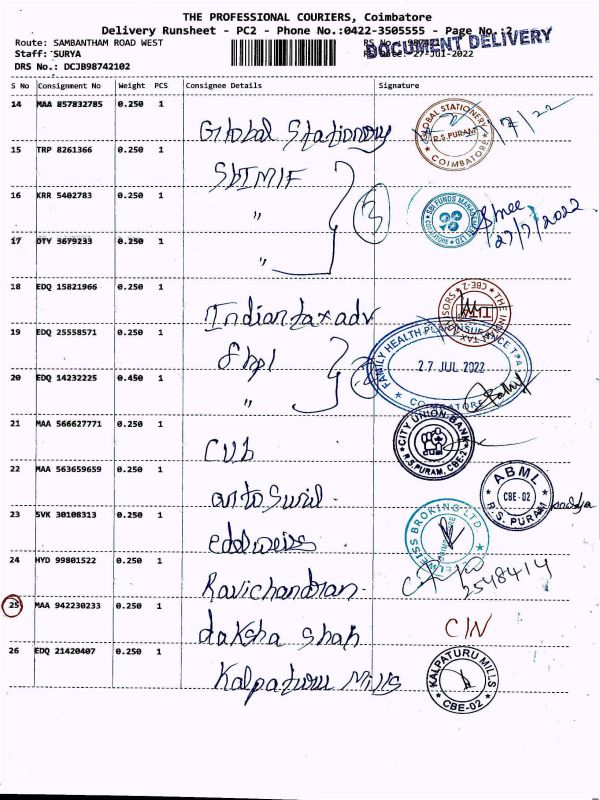 THE PROFESSIONAL COURIERS, Coimbatore
Delivery Runsheet - PC2 - Phone No.:0422-3505555 - Page No.:2
DOCUMENT DELIVERY
Route: SAMBANTHAM ROAD WEST
Staff: SURYA
27-Jul-2022
DRS No.: DCJB98742102
S No Consignment No Weight PCS Consignee Details Signature
14 MAA 857832785 0.250 1 Global Stationery
GLOBAL STATIONERY R.S.PURAM COIMBATORE
15 TRP 8261366 0.250 1 SbIMF
16 KRR 5402783 0.250 1 " 3
SBI FUNDS
27/7/2022
17 DTY 3679233 0.250 1 "
18 EDQ 15821966 0.250 1 Indian tax adv
CBE-2
19 EDQ 25558571 0.250 1 Fhpl
FAMILY HEALTH PLAN INSURANCE TPA
27 JUL 2022
COIMBATORE
20 EDQ 14232225 0.450 1 "
21 MAA 566627771 0.250 1 CUb
CITY UNION BANK
R.S.PURAM, CBE-2
22 MAA 563659659 0.250 1 anto Sunil.
ABML CBE-02 R.S. PURAM
23 SVK 30108313 0.250 1 edelweiss
BROKING LTD
24 HYD 99801522 0.250 1 Ravichandran.
2548414
25 MAA 942230233 0.250 1 daksha shah
C/N
26 EDQ 21420407 0.250 1 Kalpaturu Mills
KALPATURU MILLS CBE-02